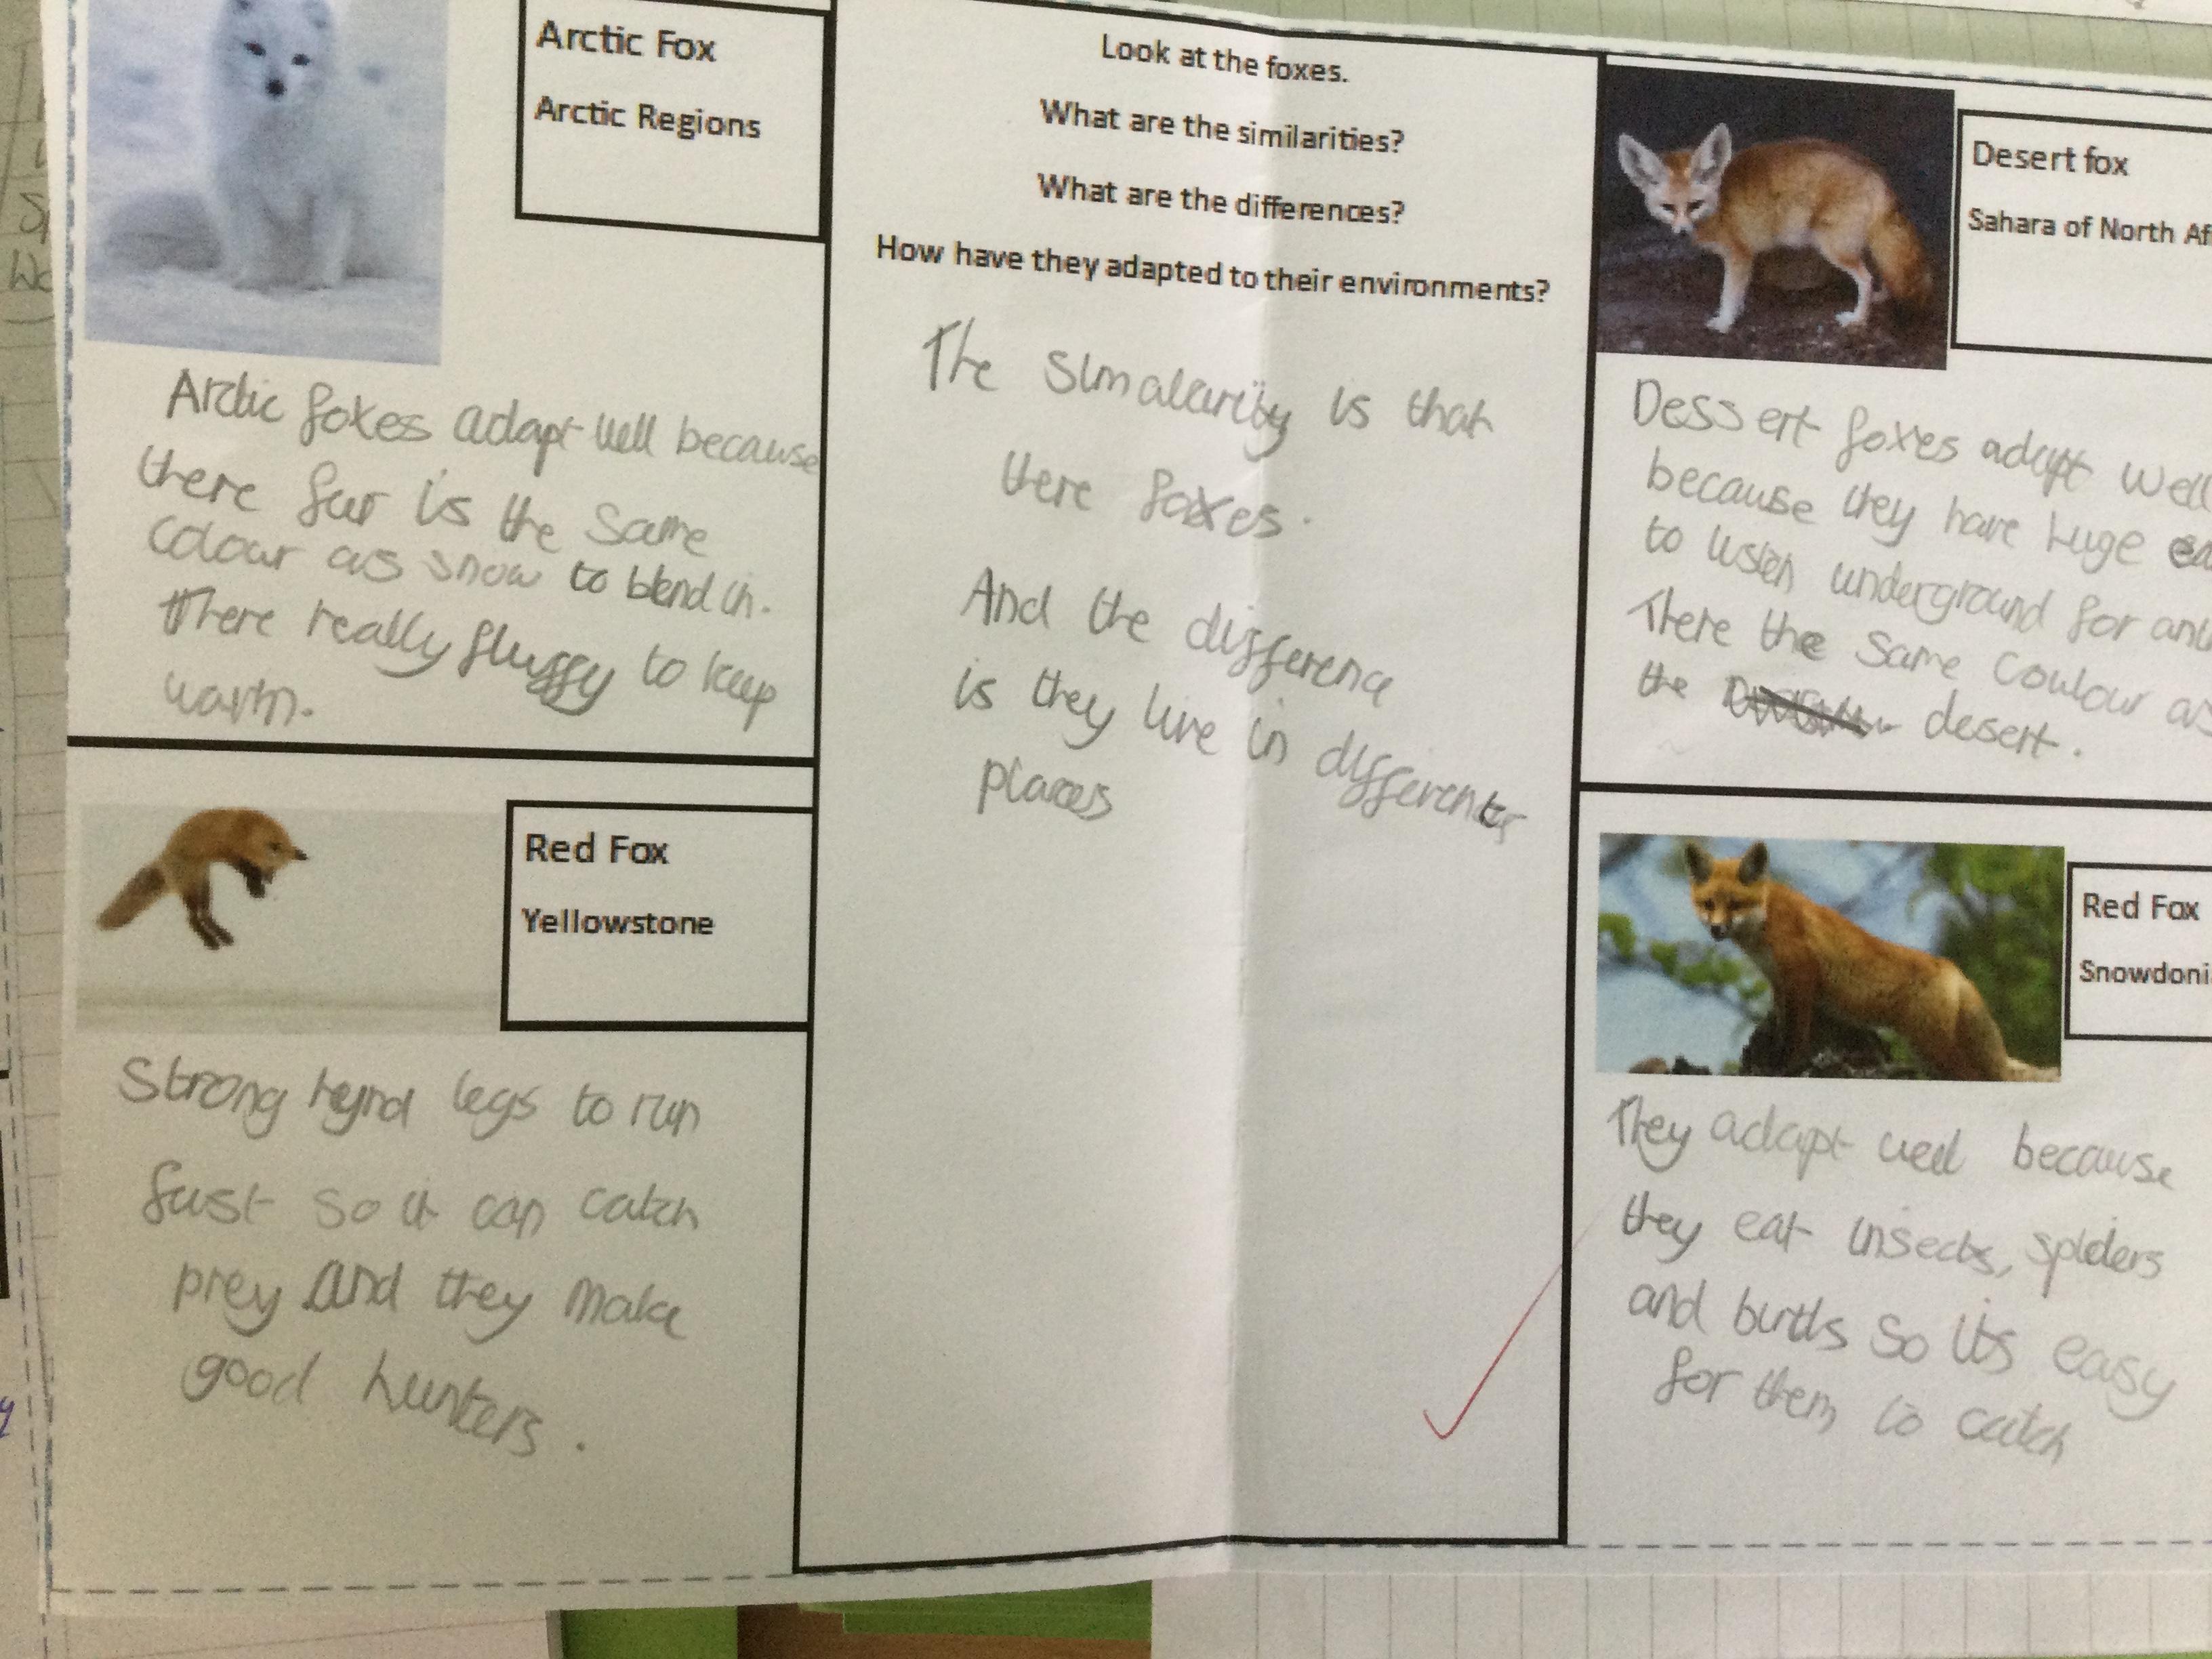 Arctic Fox
Arctic Regions
Arctic foxes adapt well because
there fur is the same
colour as snow to blend in.
There really fluffy to keep
warm.
Red Fox
Yellowstone
Strong hynd legs to run
fast so it can catch
prey and they make
good hunters.
Look at the foxes.
What are the similarities?
What are the differences?
How have they adapted to their environments?
The simalarity is that
there foxes.
And the difference
is they live in different
places
Desert fox
Sahara of North Af
Dessert foxes adapt well
because they have huge ea
to listen underground for ant
There the same coulour as
the desert.
Red Fox
Snowdoni
They adapt well because
they eat insects, spiders
and birds so its easy
for them to catch